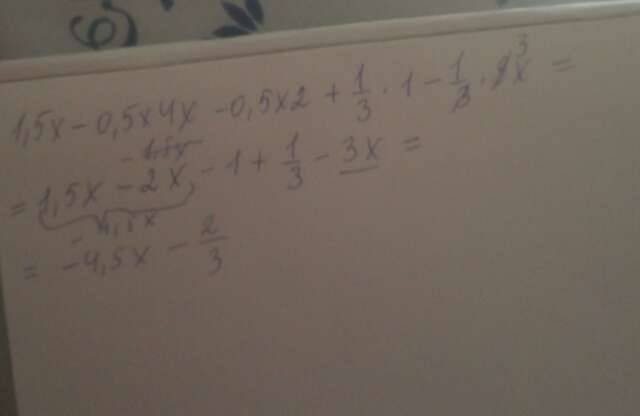 1,5x - 0,5x4x - 0,5x2 + 1/3 · 1 - 1/3 · 9x 3 =
= 1,5x - 2x - 1 + 1/3 - 3x =
= -4,5x - 2/3